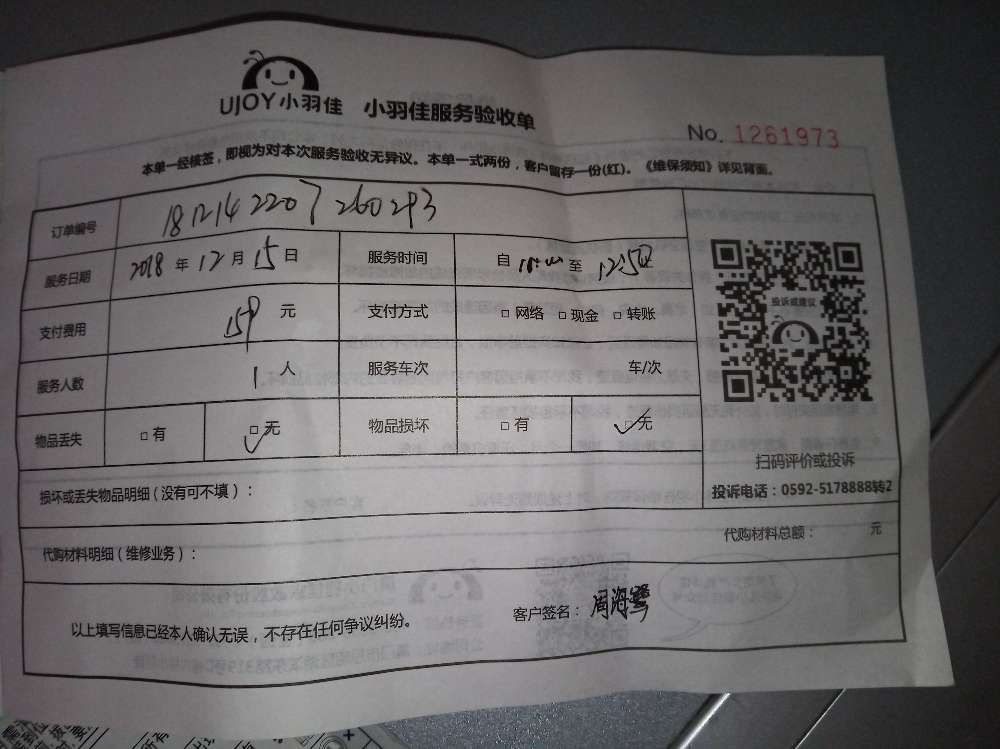 UJOY小羽佳 小羽佳服务验收单
No. 1261973
本单一经核签，即视为对本次服务验收无异议。本单一式两份，客户留存一份(红)。《维保须知》详见背面。
订单编号 1812142207260293
服务日期 2018 年 12 月 15 日 服务时间 自 至
支付费用 159 元 支付方式 □ 网络 □ 现金 □ 转账
服务人数 1 人 服务车次 车/次
物品丢失 □ 有 □ 无 物品损坏 □ 有 □ 无
投诉或建议
扫码评价或投诉
投诉电话：0592-5178888转2
损坏或丢失物品明细（没有可不填）：
代购材料明细（维修业务）： 代购材料总额： 元
以上填写信息已经本人确认无误，不存在任何争议纠纷。 客户签名：周海